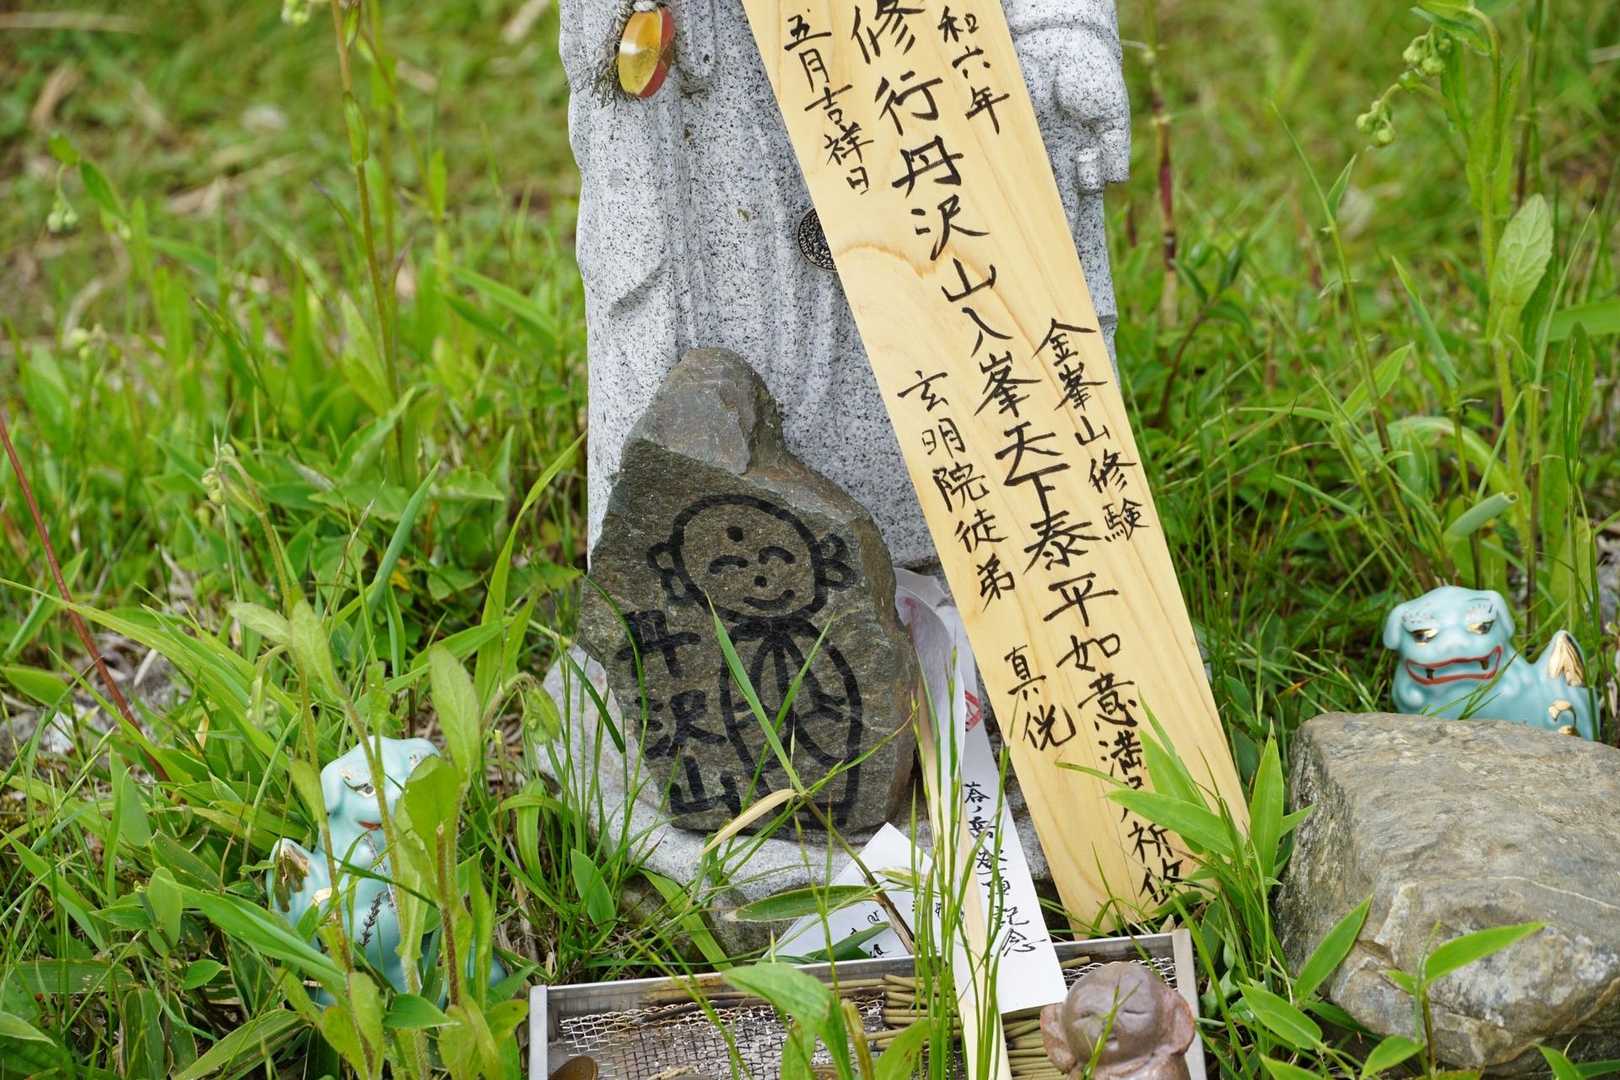 和六年
修行丹沢山入峯天下泰平如意満足祈攸
五月吉祥日
金峯山修験
玄明院徒弟
真侊
丹沢山
塔ノ岳登頂記念